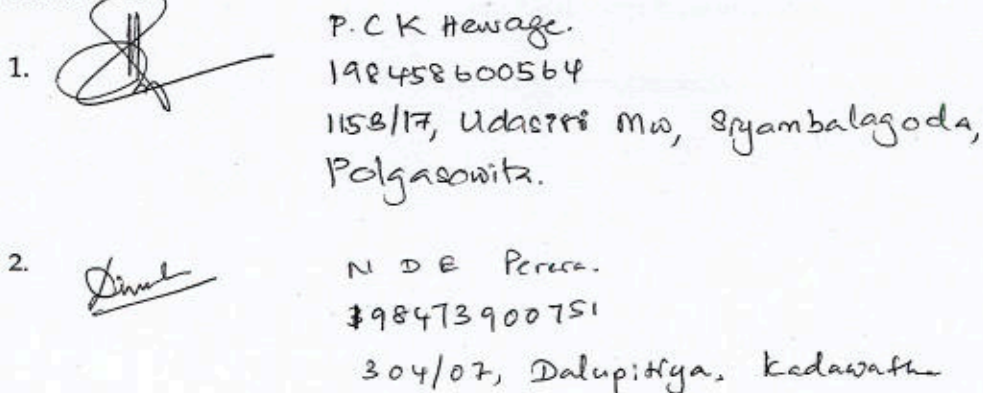 1.
P. C K Hewage.
198458600564
1158/17, Udasiri Mw, Siyambalagoda,
Polgasowita.
2.
N D E Perera.
198473900751
304/07, Dalupitiya, Kadawatha